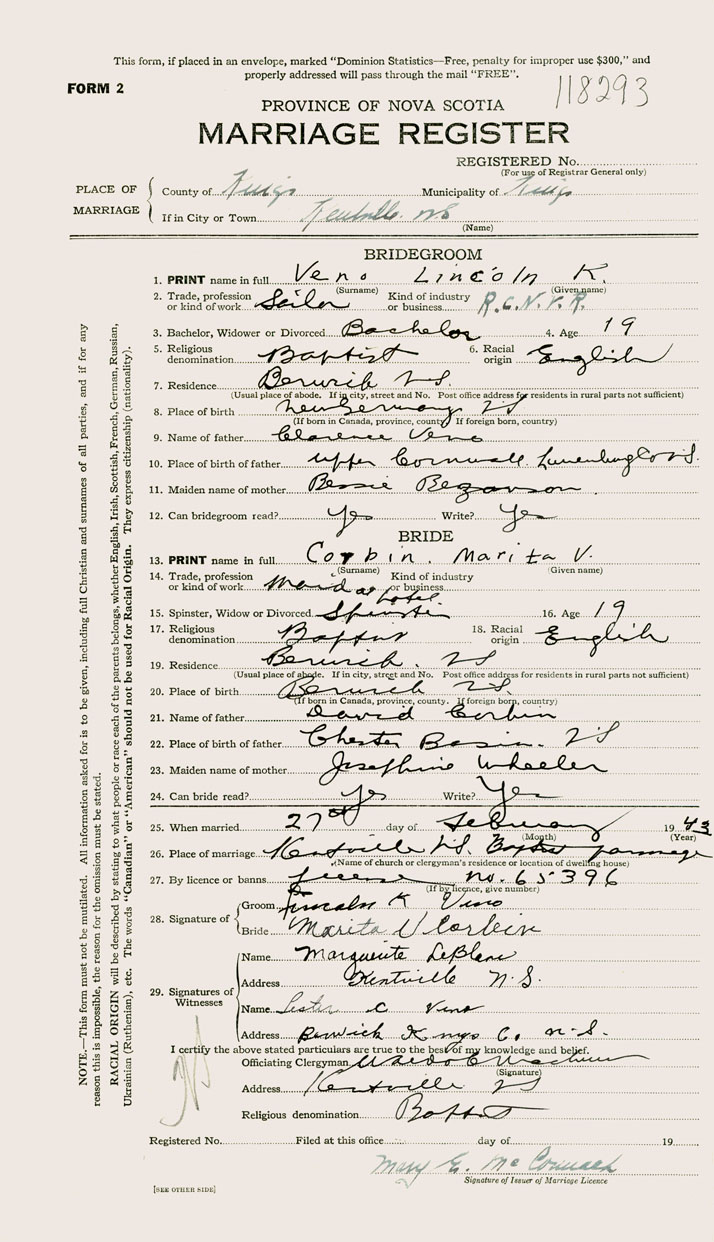 This form, if placed in an envelope, marked "Dominion Statistics—Free, penalty for improper use $300," and
properly addressed will pass through the mail "FREE".
FORM 2
118293
PROVINCE OF NOVA SCOTIA
MARRIAGE REGISTER
REGISTERED No.
(For use of Registrar General only)
PLACE OF MARRIAGE
County of Kings Municipality of Kings
If in City or Town Kentville NS
(Name)
BRIDEGROOM
1. PRINT name in full Veno Lincoln K.
(Surname) (Given name)
2. Trade, profession or kind of work Sailor Kind of industry or business R.C.N.V.R.
3. Bachelor, Widower or Divorced Bachelor 4. Age 19
5. Religious denomination Baptist 6. Racial origin English
7. Residence Berwick N.S.
(Usual place of abode. If in city, street and No. Post office address for residents in rural parts not sufficient)
8. Place of birth New Germany NS
(If born in Canada, province, county. If foreign born, country)
9. Name of father Clarence Veno
10. Place of birth of father Upper Cornwall Lunenburg Co N.S.
11. Maiden name of mother Bessie Bezanson
12. Can bridegroom read? Yes Write? Yes
BRIDE
13. PRINT name in full Corbin. Marita V.
(Surname) (Given name)
14. Trade, profession or kind of work Maid at hotel Kind of industry or business
15. Spinster, Widow or Divorced Spinster 16. Age 19
17. Religious denomination Baptist 18. Racial origin English
19. Residence Berwick. NS
(Usual place of abode. If in city, street and No. Post office address for residents in rural parts not sufficient)
20. Place of birth Berwick NS.
(If born in Canada, province, county. If foreign born, country)
21. Name of father David Corbin
22. Place of birth of father Chester Basin. NS
23. Maiden name of mother Josephine Wheeler
24. Can bride read? Yes Write? Yes
25. When married 27th day of February 1943
(Month) (Year)
26. Place of marriage Kentville N.S. Baptist parsonage
(Name of church or clergyman's residence or location of dwelling house)
27. By licence or banns license no. 65396
(If by licence, give number)
28. Signature of Groom Lincoln K Veno
Bride Marita V Corbin
29. Signatures of Witnesses
Name Marguerite LeBlanc
Address Kentville N.S.
Name Lester C Veno
Address Berwick Kings Co. N.S.
I certify the above stated particulars are true to the best of my knowledge and belief.
Officiating Clergyman
(Signature)
Address Kentville NS
Religious denomination Baptist
Registered No. Filed at this office day of 19
Mary E. McCormack
Signature of Issuer of Marriage Licence
[SEE OTHER SIDE]
NOTE.—This form must not be mutilated. All information asked for is to be given, including full Christian and surnames of all parties, and if for any
reason this is impossible, the reason for the omission must be stated.
RACIAL ORIGIN will be described by stating to what people or race each of the parents belongs, whether English, Irish, Scottish, French, German, Russian,
Ukrainian (Ruthenian), etc. The words "Canadian" or "American" should not be used for Racial Origin. They express citizenship (nationality).